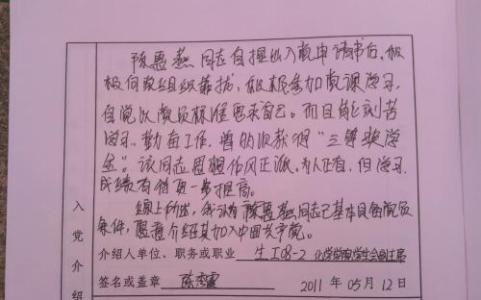 陈惠燕同志自提出入党申请书后，积
极向党组织靠拢，积极参加党课学习，
自觉以党员标准要求自己。而且能刻苦
学习，勤奋工作，曾收获得"三等奖学
金"。该同志思想作风正派，为人正直，但学习
成绩有待更一步提高。
综上所述，我认为陈惠燕同志已基本具备党员
条件，愿意介绍其加入中国共产党。
入党介绍
介绍人单位、职务或职业 生工08-2 化学学院学生会副主席
签名或盖章 陈秀霞 2011 年 05 月 12 日